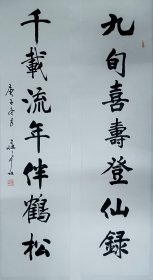 九旬喜壽登仙録
千載流年伴鶴松
庚子冬月